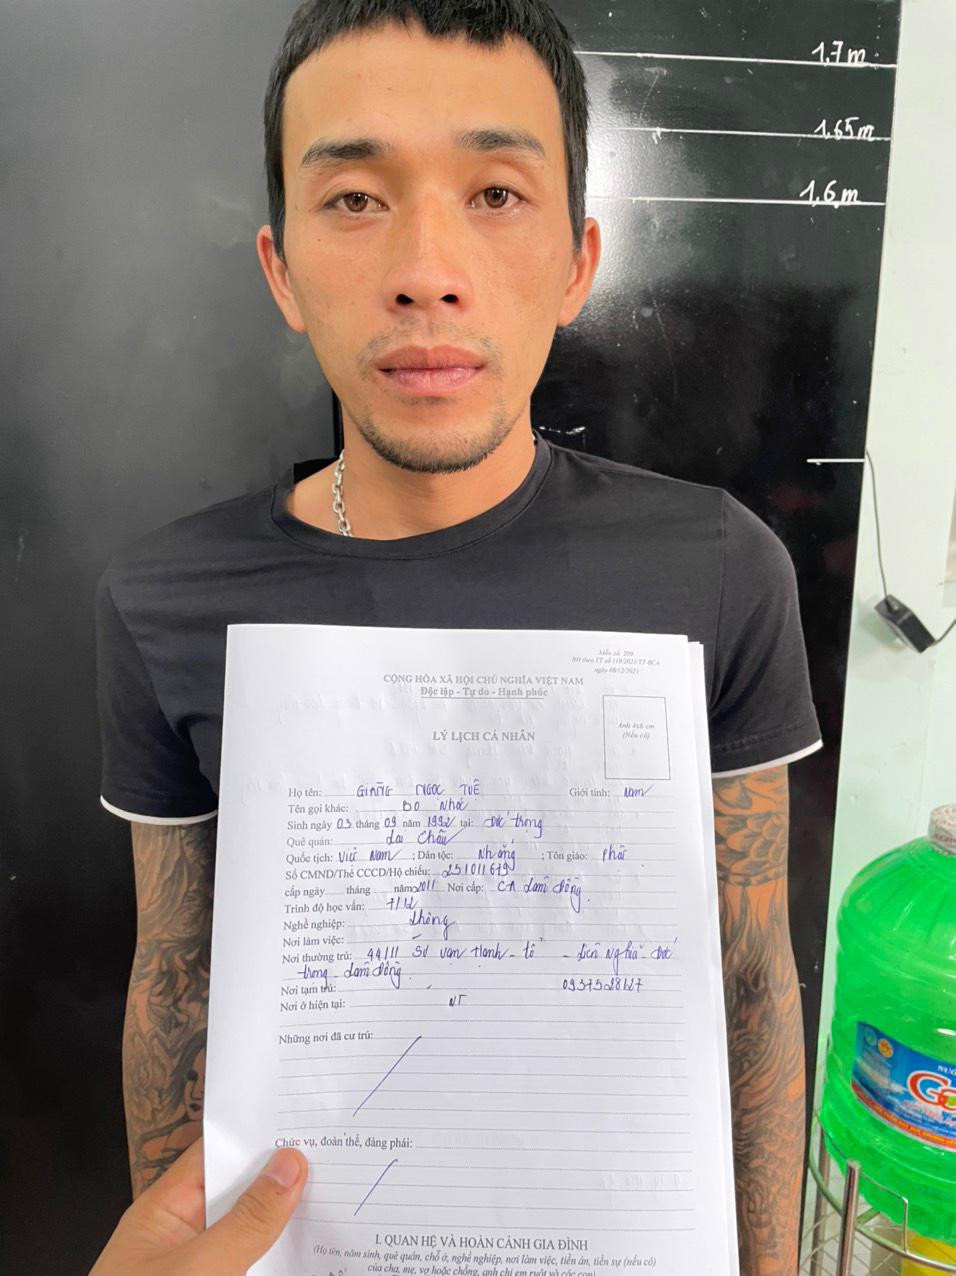 1,7 m
1,65 m
1,6 m
Mẫu số: 209
BH theo TT số 119/2021/TT-BCA
ngày 08/12/2021
CỘNG HÒA XÃ HỘI CHỦ NGHĨA VIỆT NAM
Độc lập - Tự do - Hạnh phúc
Ảnh 4x6 cm
(Nếu có)
LÝ LỊCH CÁ NHÂN
Họ tên: GIÀNG NGỌC TUỆ Giới tính: Nam
Tên gọi khác: Bo Nhóc
Sinh ngày 03 tháng 09 năm 1992 tại: Đức Trọng
Quê quán: Lai Châu
Quốc tịch: Việt Nam ; Dân tộc: ; Tôn giáo: Phật
Số CMND/Thẻ CCCD/Hộ chiếu: 251011679
cấp ngày tháng năm 2011 Nơi cấp: CA Lâm Đồng.
Trình độ học vấn: 7/12
Nghề nghiệp: Không
Nơi làm việc:
Nơi thường trú: 44/11 Sư Vạn Hạnh - tổ - Liên Nghĩa - Đức
Trọng - Lâm Đồng.
Nơi tạm trú: 0937528627
Nơi ở hiện tại: NT
Những nơi đã cư trú:
Chức vụ, đoàn thể, đảng phái:
I. QUAN HỆ VÀ HOÀN CẢNH GIA ĐÌNH
(Họ tên, năm sinh, quê quán, chỗ ở, nghề nghiệp, nơi làm việc, tiền án, tiền sự (nếu có)
của cha, mẹ, vợ hoặc chồng, anh chị em ruột và các con)